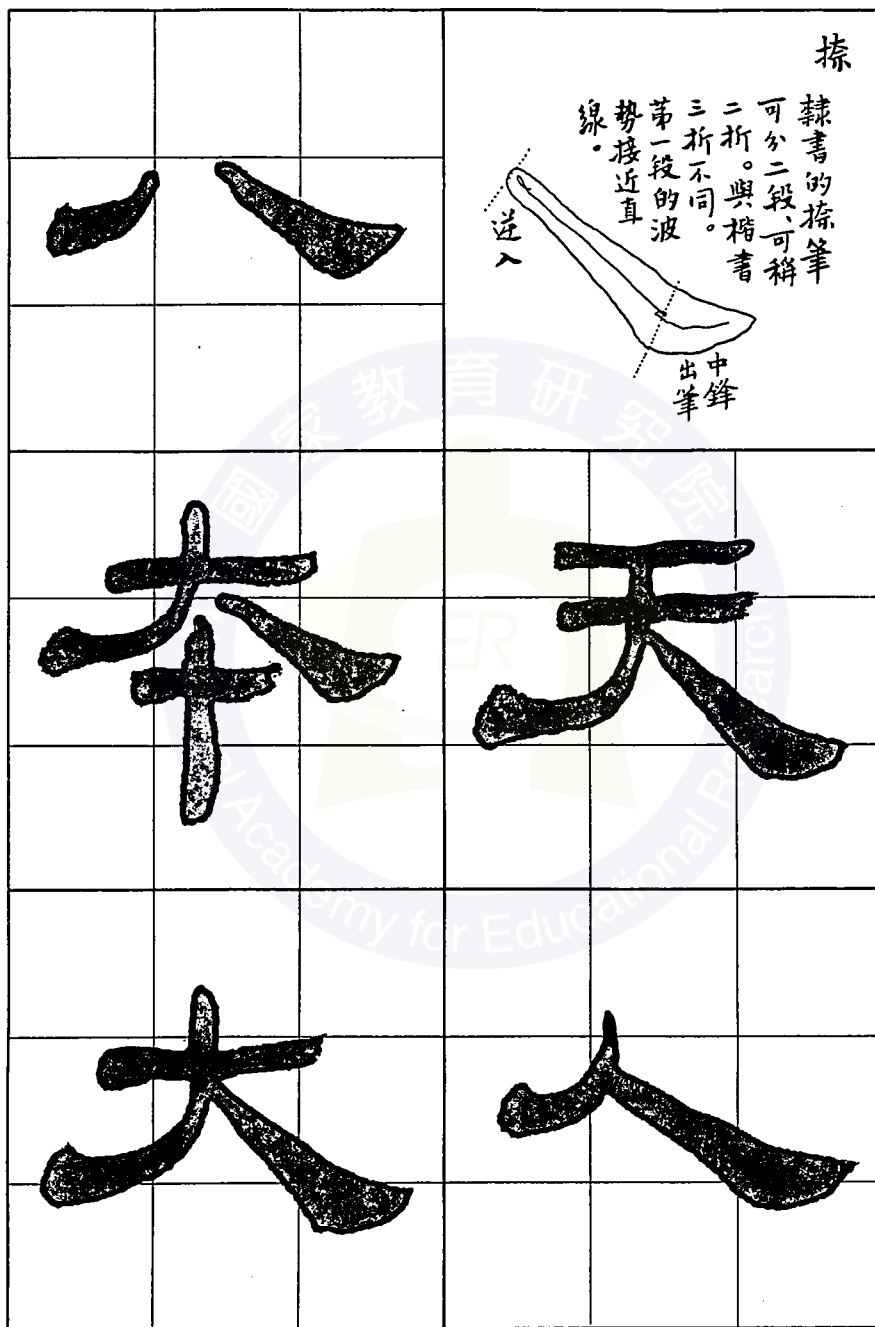 捺
隸書的捺筆
可分二段、可稱
二折。與楷書
三折不同。
第一段的波
勢接近直
線。
逆入
中鋒
出筆
八
天
本
人
大
國家教育研究院
National Academy for Educational Research